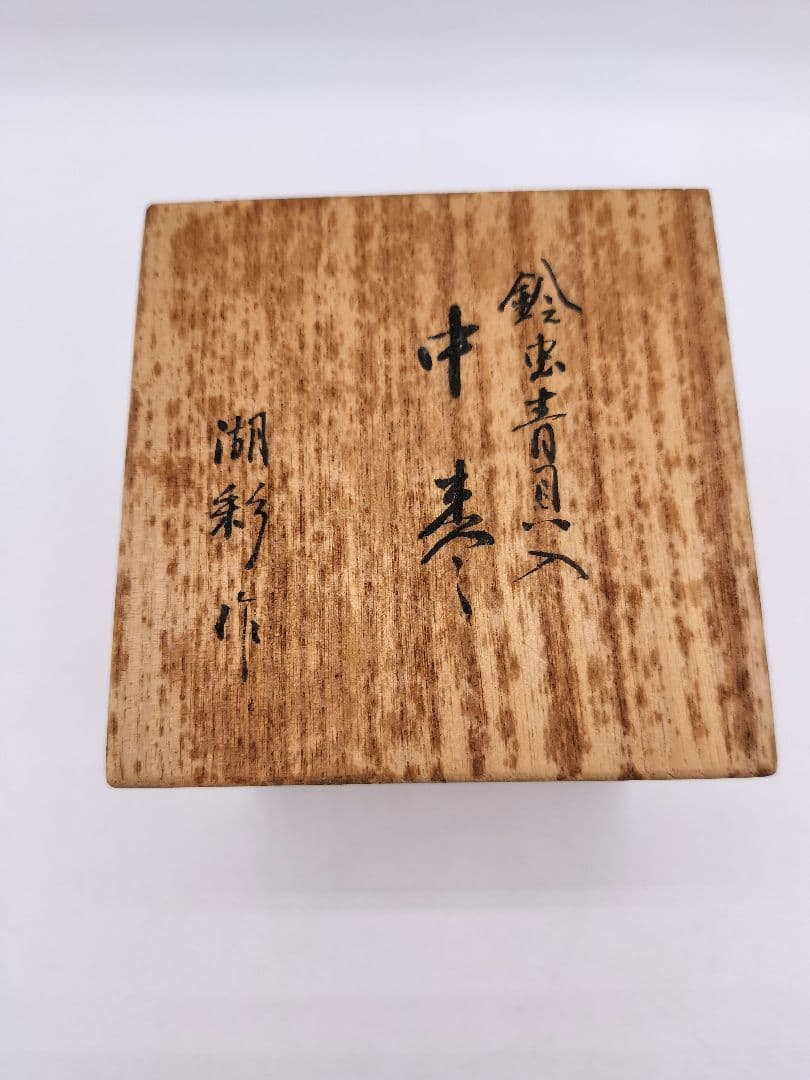 鈴虫青貝入
中棗
湖彩作